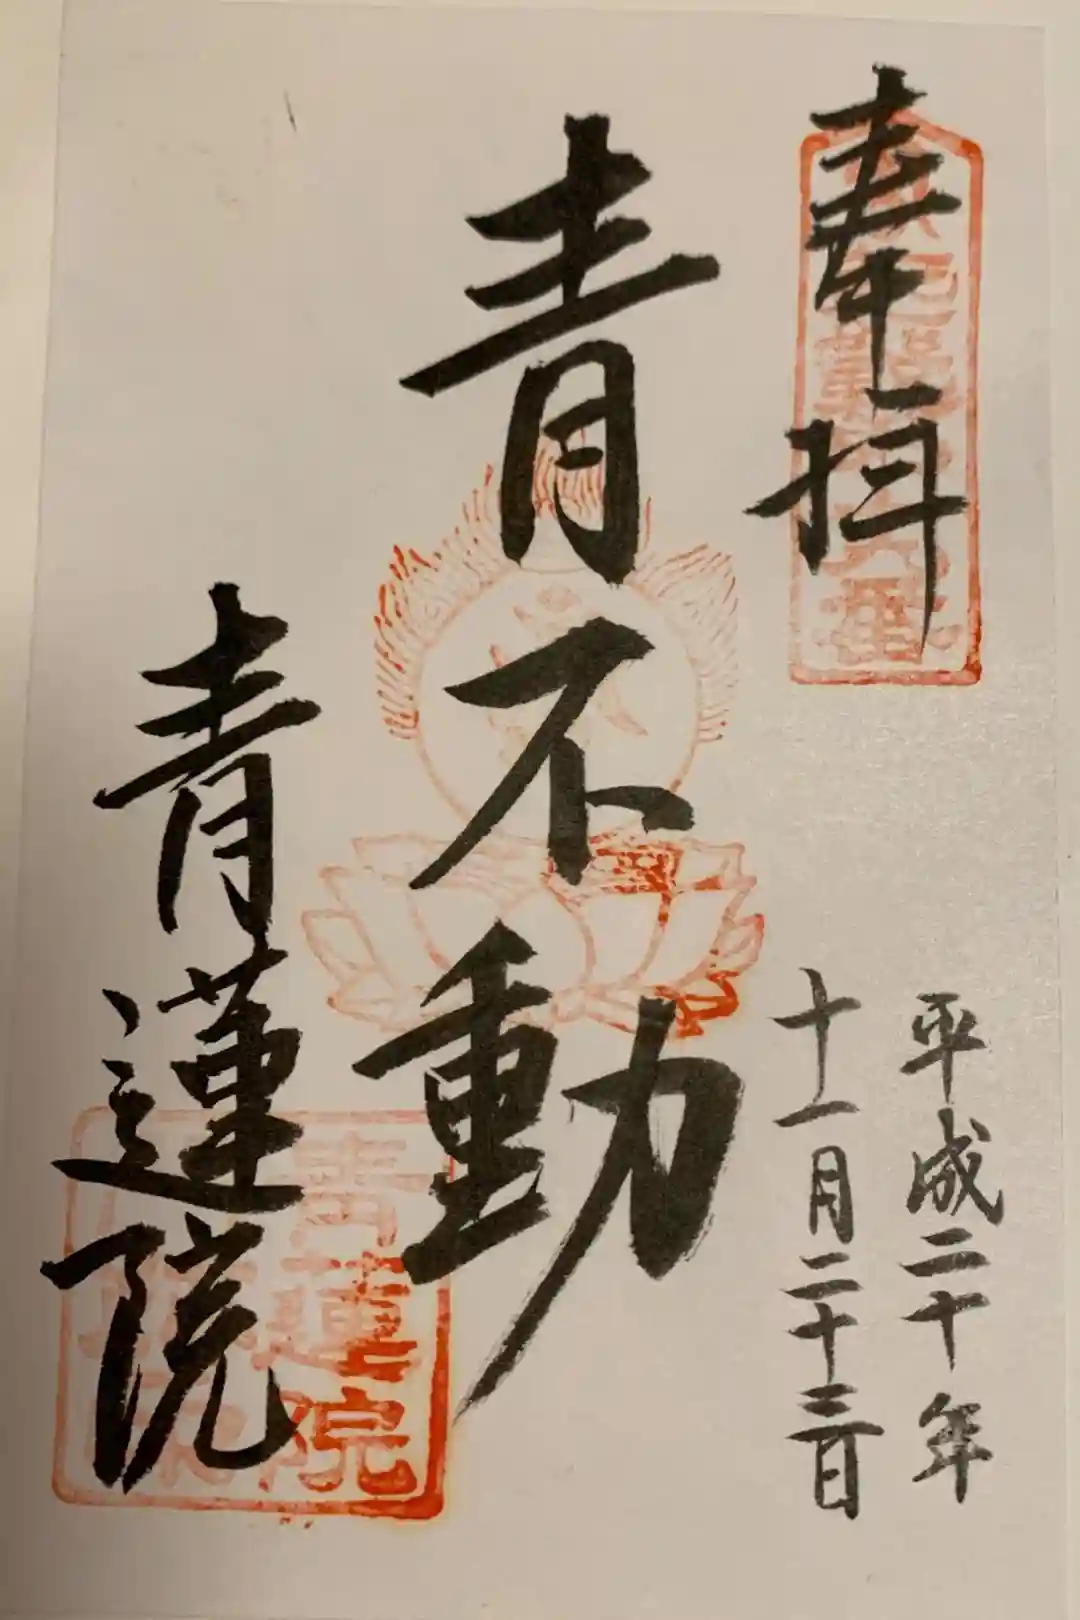 奉拝
平成二十年
十一月二十三日
青不動
青蓮院
青蓮院